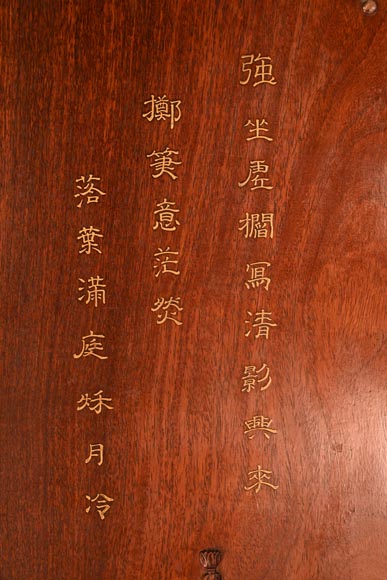 強坐虛櫩寫清影興來
擲筆意茫然
落葉滿庭秌月冷